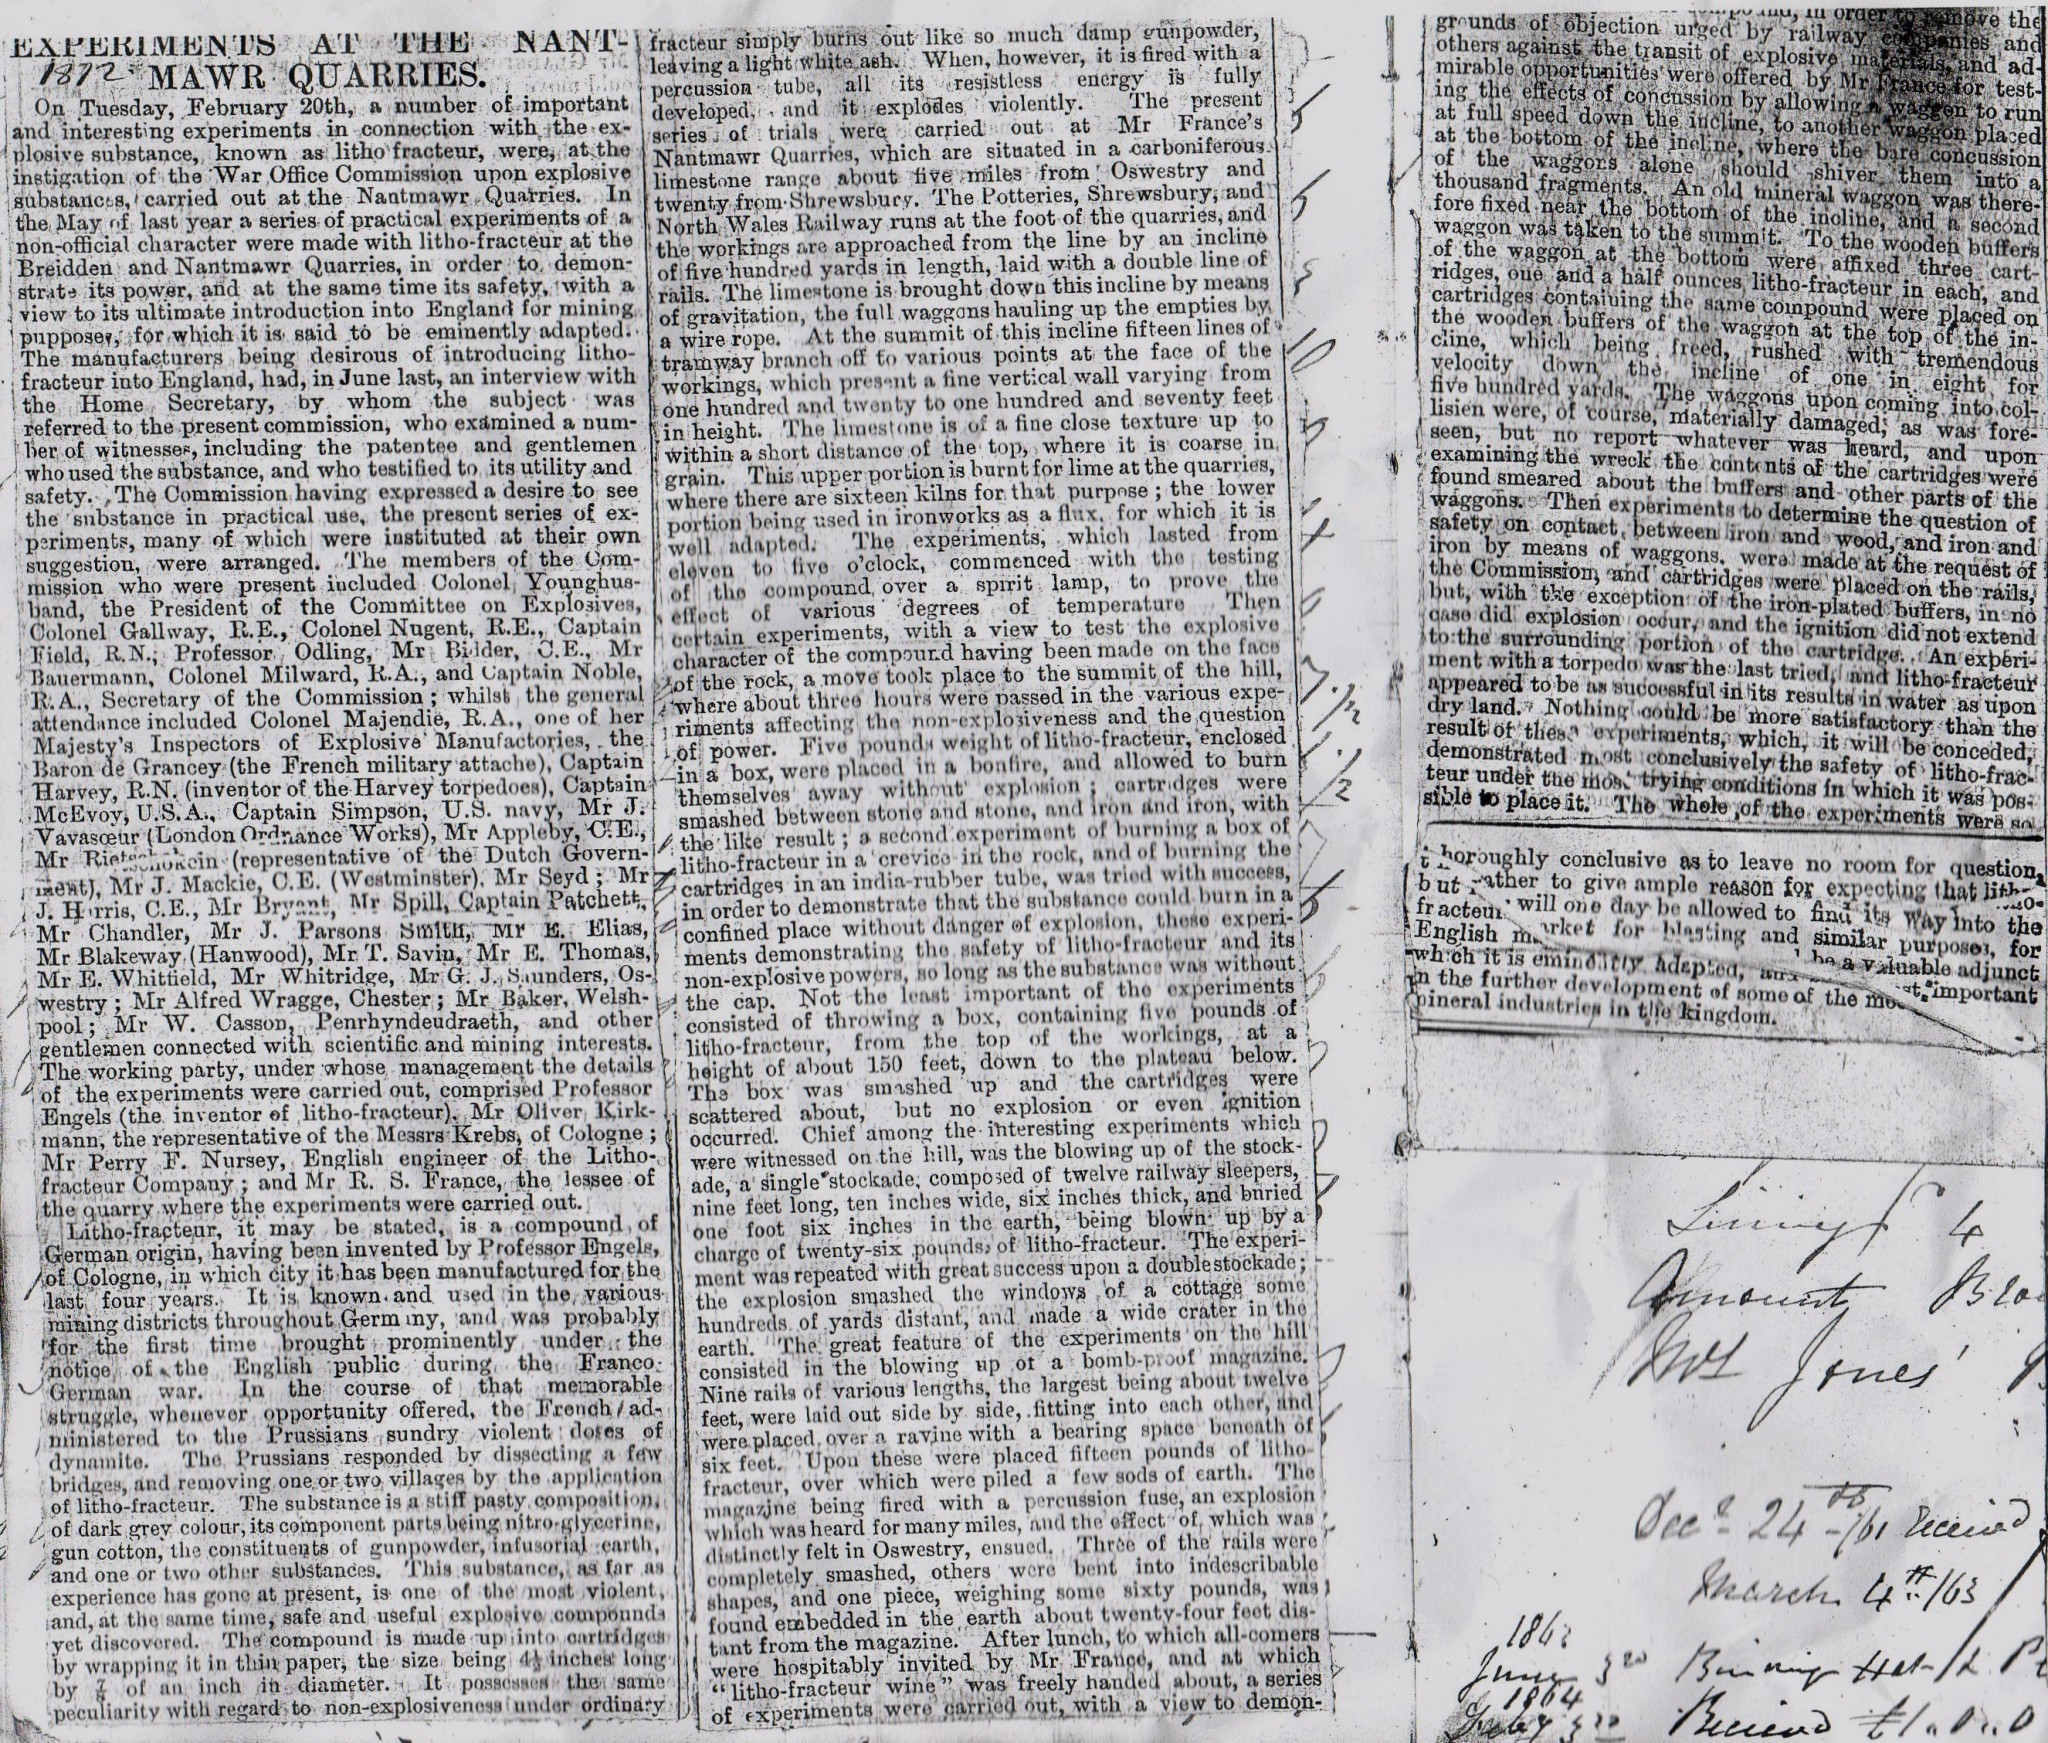 EXPERIMENTS AT THE NANT-
1872 MAWR QUARRIES.
On Tuesday, February 20th, a number of important
and interesting experiments in connection with the ex-
plosive substance, known as litho fracteur, were, at the
instigation of the War Office Commission upon explosive
substances, carried out at the Nantmawr Quarries. In
the May of last year a series of practical experiments of a
non-official character were made with litho-fracteur at the
Breidden and Nantmawr Quarries, in order to demon-
strate its power, and at the same time its safety, with a
view to its ultimate introduction into England for mining
purposes, for which it is said to be eminently adapted.
The manufacturers being desirous of introducing litho-
fracteur into England, had, in June last, an interview with
the Home Secretary, by whom the subject was
referred to the present commission, who examined a num-
ber of witnesses, including the patentee and gentlemen
who used the substance, and who testified to its utility and
safety. The Commission having expressed a desire to see
the substance in practical use, the present series of ex-
periments, many of which were instituted at their own
suggestion, were arranged. The members of the Com-
mission who were present included Colonel Younghus-
band, the President of the Committee on Explosives,
Colonel Gallway, R.E., Colonel Nugent, R.E., Captain
Field, R.N., Professor Odling, Mr Bidder, C.E., Mr
Bauermann, Colonel Milward, R.A., and Captain Noble,
R.A., Secretary of the Commission; whilst the general
attendance included Colonel Majendie, R.A., one of her
Majesty's Inspectors of Explosive Manufactories, the
Baron de Grancey (the French military attache), Captain
Harvey, R.N. (inventor of the Harvey torpedoes), Captain
McEvoy, U.S.A., Captain Simpson, U.S. navy, Mr J.
Vavasœur (London Ordnance Works), Mr Appleby, C.E.,
Mr (representative of the Dutch Govern-
ment), Mr J. Mackie, C.E. (Westminster), Mr Seyd; Mr
J. Harris, C.E., Mr Bryant, Mr Spill, Captain Patchett,
Mr Chandler, Mr J. Parsons Smith, Mr E. Elias,
Mr Blakeway (Hanwood), Mr T. Savin, Mr E. Thomas,
Mr E. Whitfield, Mr Whitridge, Mr G. J. Saunders, Os-
westry; Mr Alfred Wragge, Chester; Mr Baker, Welsh-
pool; Mr W. Casson, Penrhyndeudraeth, and other
gentlemen connected with scientific and mining interests.
The working party, under whose management the details
of the experiments were carried out, comprised Professor
Engels (the inventor of litho-fracteur), Mr Oliver Kirk-
mann, the representative of the Messrs Krebs, of Cologne;
Mr Perry F. Nursey, English engineer of the Litho-
fracteur Company; and Mr R. S. France, the lessee of
the quarry where the experiments were carried out.
Litho-fracteur, it may be stated, is a compound of
German origin, having been invented by Professor Engels,
of Cologne, in which city it has been manufactured for the
last four years. It is known and used in the various
mining districts throughout Germany, and was probably
for the first time brought prominently under the
notice of the English public during the Franco-
German war. In the course of that memorable
struggle, whenever opportunity offered, the French ad-
ministered to the Prussians sundry violent doses of
dynamite. The Prussians responded by dissecting a few
bridges, and removing one or two villages by the application
of litho-fracteur. The substance is a stiff pasty composition,
of dark grey colour, its component parts being nitro-glycerine,
gun cotton, the constituents of gunpowder, infusorial earth,
and one or two other substances. This substance, as far as
experience has gone at present, is one of the most violent,
and, at the same time, safe and useful explosive compounds
yet discovered. The compound is made up into cartridges
by wrapping it in thin paper, the size being 4½ inches long
by ⅞ of an inch in diameter. It possesses the same
peculiarity with regard to non-explosiveness under ordinary
fracteur simply burns out like so much damp gunpowder,
leaving a light white ash. When, however, it is fired with a
percussion tube, all its resistless energy is fully
developed, and it explodes violently. The present
series of trials were carried out at Mr France's
Nantmawr Quarries, which are situated in a carboniferous
limestone range about five miles from Oswestry and
twenty from Shrewsbury. The Potteries, Shrewsbury, and
North Wales Railway runs at the foot of the quarries, and
the workings are approached from the line by an incline
of five hundred yards in length, laid with a double line of
rails. The limestone is brought down this incline by means
of gravitation, the full waggons hauling up the empties by
a wire rope. At the summit of this incline fifteen lines of
tramway branch off to various points at the face of the
workings, which present a fine vertical wall varying from
one hundred and twenty to one hundred and seventy feet
in height. The limestone is of a fine close texture up to
within a short distance of the top, where it is coarse in
grain. This upper portion is burnt for lime at the quarries,
where there are sixteen kilns for that purpose; the lower
portion being used in ironworks as a flux, for which it is
well adapted. The experiments, which lasted from
eleven to five o'clock, commenced with the testing
of the compound over a spirit lamp, to prove the
effect of various degrees of temperature Then
certain experiments, with a view to test the explosive
character of the compound having been made on the face
of the rock, a move took place to the summit of the hill,
where about three hours were passed in the various expe-
riments affecting the non-explosiveness and the question
of power. Five pounds weight of litho-fracteur, enclosed
in a box, were placed in a bonfire, and allowed to burn
themselves away without explosion; cartridges were
smashed between stone and stone, and iron and iron, with
the like result; a second experiment of burning a box of
litho-fracteur in a crevice in the rock, and of burning the
cartridges in an india-rubber tube, was tried with success,
in order to demonstrate that the substance could burn in a
confined place without danger of explosion, these experi-
ments demonstrating the safety of litho-fracteur and its
non-explosive powers, so long as the substance was without
the cap. Not the least important of the experiments
consisted of throwing a box, containing five pounds of
litho-fracteur, from the top of the workings, at a
height of about 150 feet, down to the plateau below.
The box was smashed up and the cartridges were
scattered about, but no explosion or even ignition
occurred. Chief among the interesting experiments which
were witnessed on the hill, was the blowing up of the stock-
ade, a single stockade, composed of twelve railway sleepers,
nine feet long, ten inches wide, six inches thick, and buried
one foot six inches in the earth, being blown up by a
charge of twenty-six pounds of litho-fracteur. The experi-
ment was repeated with great success upon a double stockade;
the explosion smashed the windows of a cottage some
hundreds of yards distant, and made a wide crater in the
earth. The great feature of the experiments on the hill
consisted in the blowing up of a bomb-proof magazine.
Nine rails of various lengths, the largest being about twelve
feet, were laid out side by side, fitting into each other, and
were placed over a ravine with a bearing space beneath of
six feet. Upon these were placed fifteen pounds of litho-
fracteur, over which were piled a few sods of earth. The
magazine being fired with a percussion fuse, an explosion
which was heard for many miles, and the effect of which was
distinctly felt in Oswestry, ensued. Three of the rails were
completely smashed, others were bent into indescribable
shapes, and one piece, weighing some sixty pounds, was
found embedded in the earth about twenty-four feet dis-
tant from the magazine. After lunch, to which all-comers
were hospitably invited by Mr France, and at which
"litho-fracteur wine" was freely handed about, a series
of experiments were carried out, with a view to demon-
compound, in order to remove the
grounds of objection urged by railway companies and
others against the transit of explosive materials, and ad-
mirable opportunities were offered by Mr France for test-
ing the effects of concussion by allowing a waggon to run
at full speed down the incline, to another waggon placed
at the bottom of the incline, where the bare concussion
of the waggons alone should shiver them into a
thousand fragments. An old mineral waggon was there-
fore fixed near the bottom of the incline, and a second
waggon was taken to the summit. To the wooden buffers
of the waggon at the bottom were affixed three cart-
ridges, one and a half ounces litho-fracteur in each, and
cartridges containing the same compound were placed on
the wooden buffers of the waggon at the top of the in-
cline, which being freed, rushed with tremendous
velocity down the incline of one in eight for
five hundred yards. The waggons upon coming into col-
lisien were, of course, materially damaged, as was fore-
seen, but no report whatever was heard, and upon
examining the wreck the contents of the cartridges were
found smeared about the buffers and other parts of the
waggons. Then experiments to determine the question of
safety on contact between iron and wood, and iron and
iron by means of waggons, were made at the request of
the Commission, and cartridges were placed on the rails,
but, with the exception of the iron-plated buffers, in no
case did explosion occur, and the ignition did not extend
to the surrounding portion of the cartridge. An experi-
ment with a torpedo was the last tried, and litho-fracteur
appeared to be as successful in its results in water as upon
dry land. Nothing could be more satisfactory than the
result of these experiments, which, it will be conceded,
demonstrated most conclusively the safety of litho-frac-
teur under the most trying conditions in which it was pos-
sible to place it. The whole of the experiments were so
thoroughly conclusive as to leave no room for question,
but rather to give ample reason for expecting that litho-
fracteur will one day be allowed to find its way into the
English market for blasting and similar purposes, for
which it is eminently adapted, and be a valuable adjunct
in the further development of some of the most important
mineral industries in the kingdom.
4
Amount
Jones'
Decr 24th /61 received
March 4th /63
June
1864
July Received £1.0.0